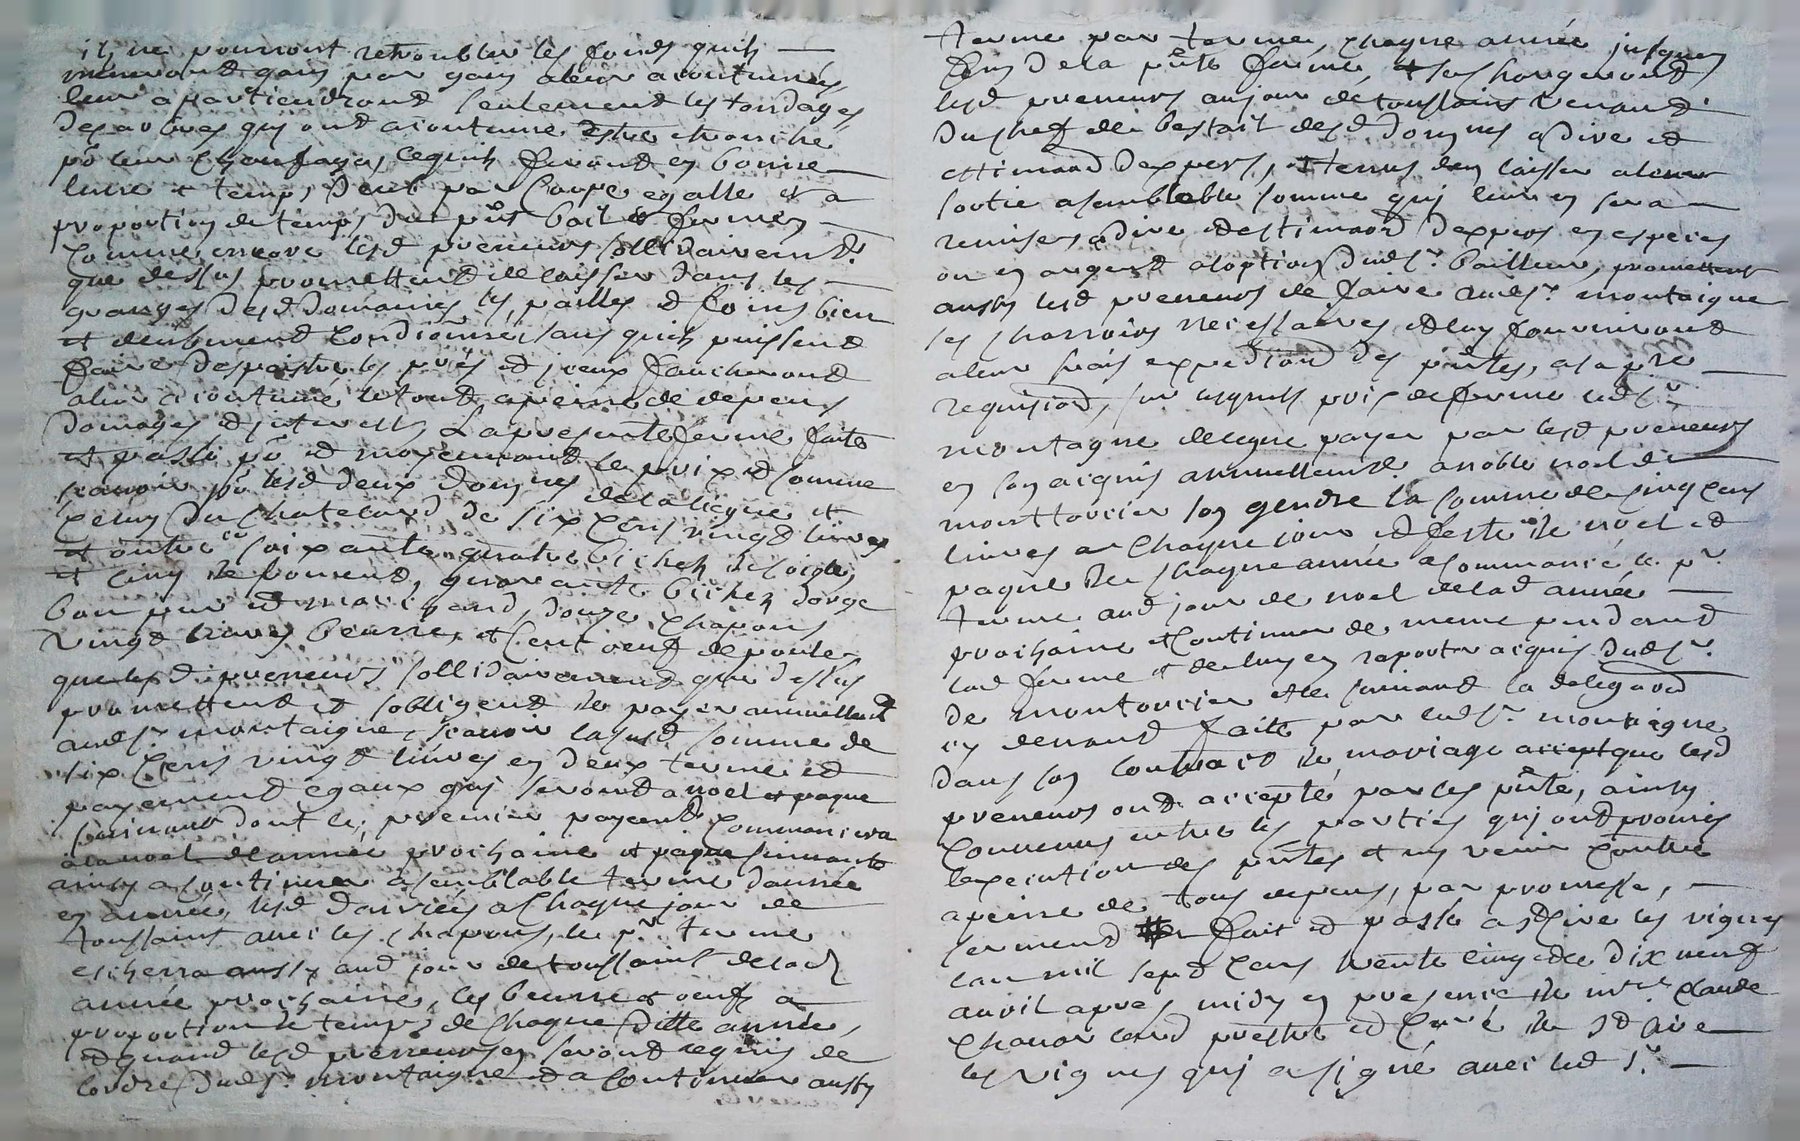 ils ne pourront retroubler les fonds quils
meneront gans par gans aleur acoutumés,
leur apartiendront seulement les tondages
des arbres qui ont acoutume estre tronché
po leur chaufages, ce quils feront en bonne
lune et temps deub par coupe egalle et a
proportion de temps du pnt bail et ferme,
comme encore lesd preneurs sollidairemt
que dessus promettent de laisser dans les
granges desd domaines les pailles et foins bien
et deubment conditionnés sans quils puissent
faire despaistre les prés et iceux faucheront
aleur acoutumé, le tout a peine de depens
domages et interests, La presente ferme faite
et passé po et moyennant le prix et somme
scavoir po lesd deux domaines de la liegue et
celuy du chatelard de six cens vingt livres
et outre ce soixante quatre bichets de soigle,
et cinq de froment, quarante bichets dorge
bon pur et marchand, douze chapons
vingt livres beurre, et cent oeufs de poule
que lesd preneurs sollidairement que dessus
promettent et sobligent de payer annuellemt
audsr montaigne, scavoir lasusd somme de
six cens vingt livres en deux terme et
payement egaux qui seront a noel et paque
suivant dont le premier payemt commancera
a la noel de année prochaine et paque suivante
ainsy a continuer a semblable terme dannée
en année, lesd darrées a chaque jour de
toussaint avec les chapons, le pr terme
escherra aussy aud jour de toussaint de lad
année prochaine, les beurre et oeufs a
proportion de temps de chaque ditte année,
et quand lesd preneurs en seront requis de
lordre dudsr montaigne et a continuer aussy
terme par terme, chaque année jusques
fins de la pnte ferme, et se chargeront
lesd preneurs au jour de toussaint venant
du chef de bestail desd domaines a dire et
estimaon dexpers, et tenus den laisser a leur
sortie a semblable somme qui leur en sera
remises a dire et estimaon dexpers en especes
ou en argent a loption dudsr bailleur, promettent
aussy lesd preneurs de faire audsr montaigne
les charrois necessaires et luy fourniront
a leur frais expedition des pntes, a la pre
requision, sur lesquels prix de ferme ledsr
montagne delegue payer par lesd preneurs
en son aquis annuellement a noble noel de
monttorcier son gendre la somme de cinq cens
livres a chaque jour et feste de noel et
paque de chaque année a commancé le pr
terme aud jour de noel de lad année
prochaine et continuer de meme pendant
lad ferme et de luy en raporter aquis dudsr
de montorcier et ce suivant la delegaon
cy devant faite par ledsr montaigne
dans son contract de mariage acceptque lesd
preneurs ont accepté par les pnte, ainsy
convenus entre les parties qui ont promis
lexecution des pntes et ny venir contre
a peine de tous depens, par promesse,
serment fait et passé a st cire les vignes
lan mil sept cens trente cinq et le dix neuf
avril apres midy en presence de mre claude
chavarlard prestre et curé de st cire
les vignes qui a signé avec led sr